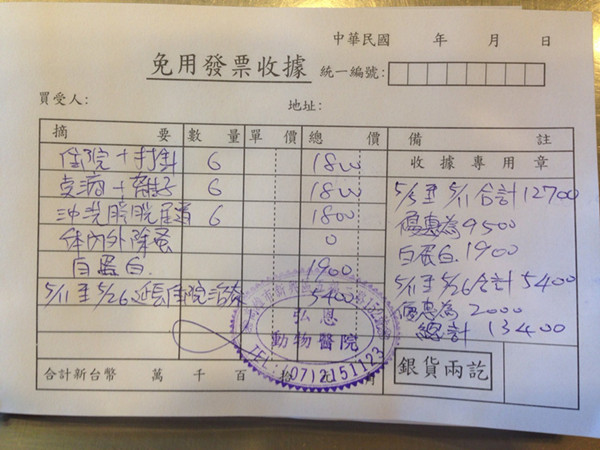 中華民國 年 月 日
免用發票收據 統一編號:
買受人: 地址:
摘 要 數 量 單 價 總 價 備 註
收據專用章
住院+打針 6 1800
6 1800
6 1800
體內外除蚤 0
白蛋白. 1900
5/11至5/26延長住院 5400
5/5至5/11合計12700
優惠為9500
白蛋白.1900
5/11至5/26合計5400
優惠為2000
總計13400
弘恩
動物醫院
TEL:(07)2151123
銀貨兩訖
合計新台幣 萬 千 百